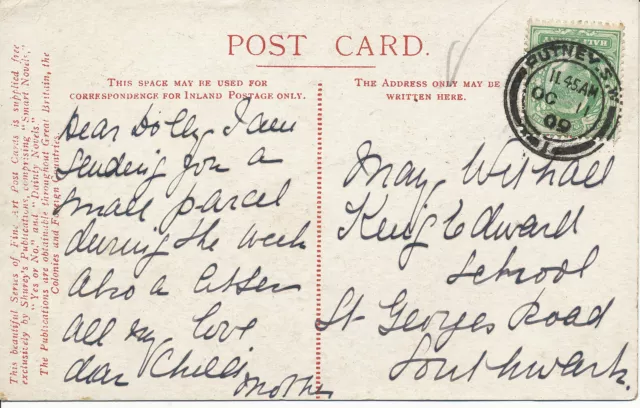 POST CARD.
THIS SPACE MAY BE USED FOR
CORRESPONDENCE FOR INLAND POSTAGE ONLY.
THE ADDRESS ONLY MAY BE
WRITTEN HERE.
Dear Dolly, I am
sending you a
small parcel
during the week
also a letter
all my love
dear Child
Mother
May Withall
King Edward
School
St Georges Road
Southwark.
PUTNEY. S.W
11.45AM
OC 11
09
HALF PENNY
This beautiful Series of Fine Art Post Cards is supplied free
exclusively by Shurey's Publications, comprising "Smart Novels,"
"Yes or No," and "Dainty Novels."
The Publications are obtainable throughout Great Britain, the
Colonies and Foreign Countries.